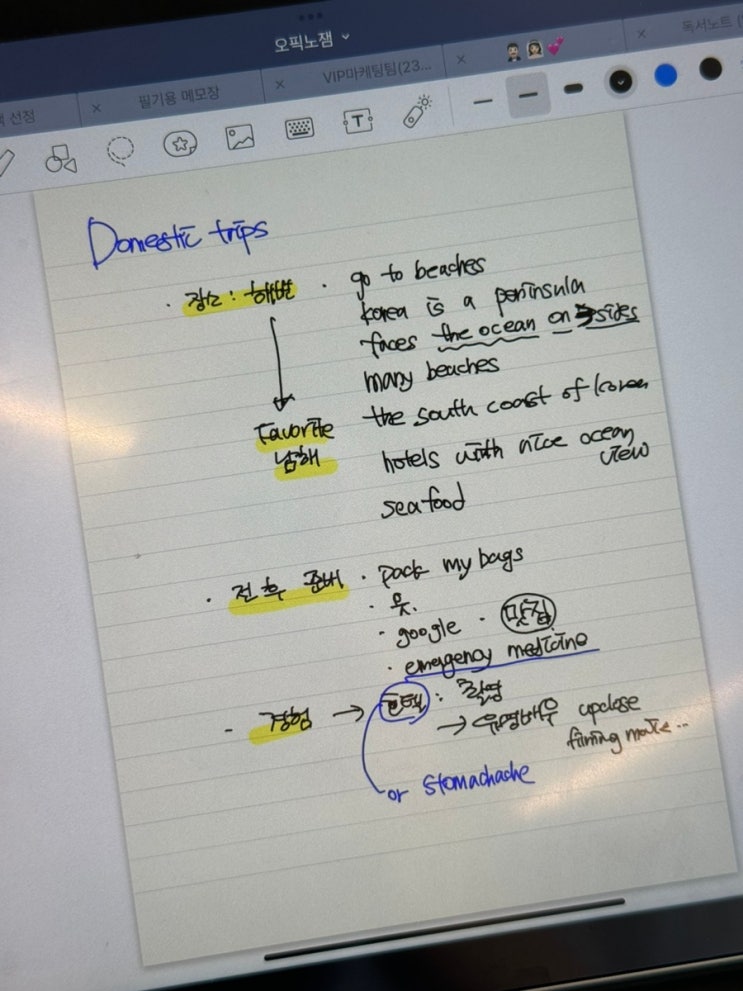 오픽노잼
선정
필기용 메모장
VIP마케팅팀(23...
독서노트
T
Domestic trips
· 장소 : 해변 · go to beaches
korea is a peninsula
faces the ocean on 3 sides
many beaches
Favorite the south coast of Korea
남해 hotels with nice ocean view
seafood
· 전후 준비 · pack my bags
· 옷.
· google · 맛집
· emergency medicine
- 경험 → : 촬영
→ 유명배우 upclose
filming movie...
or stomachache